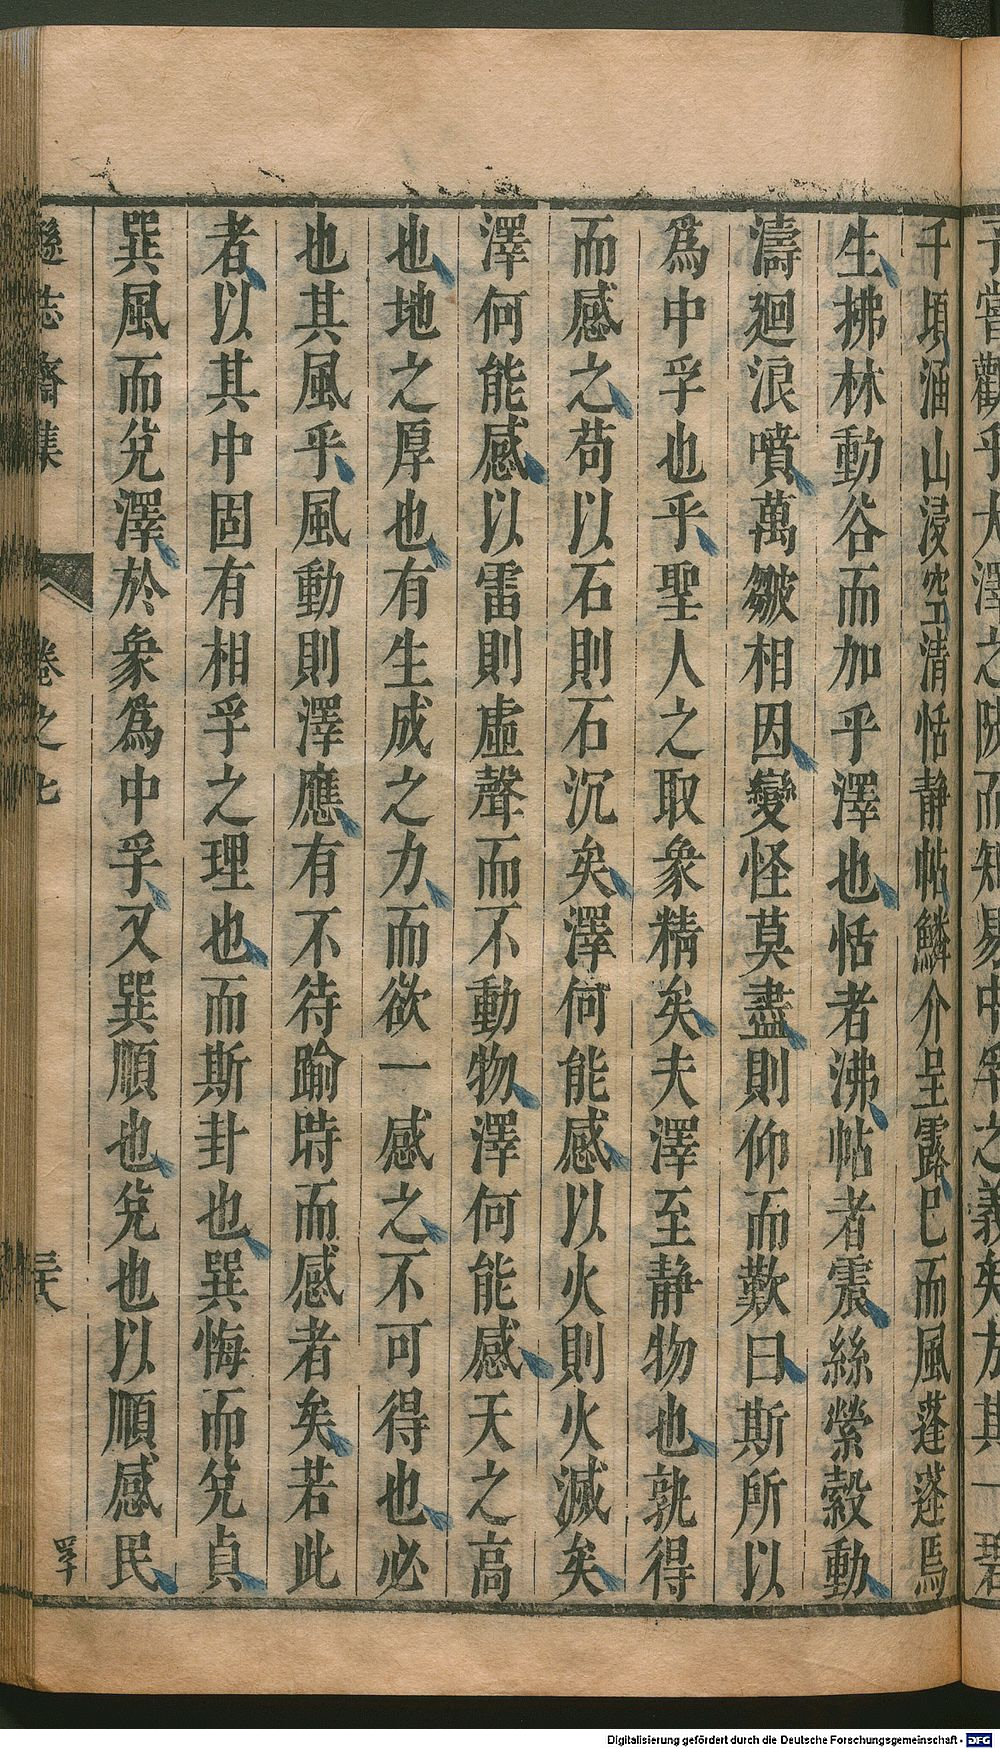 子嘗觀乎大澤之陂而知易中孚之義矣方其一碧
千頃涵山浸空清恬静帖鱗介呈露已而風蓬蓬焉
生拂林動谷而加乎澤也恬者沸帖者震絲縈縠動
濤廻浪噴萬皺相因變怪莫盡則仰而歎曰斯所以
為中孚也乎聖人之取象精矣夫澤至静物也孰得
而感之苟以石則石沉矣澤何能感以火則火滅矣
澤何能感以雷則虛聲而不動物澤何能感天之高
也地之厚也有生成之力而欲一感之不可得也必
也其風乎風動則澤應有不待踰時而感者矣若此
者以其中固有相孚之理也而斯卦也巽悔而兌貞
巽風而兌澤於象為中孚又巽順也兌也以順感民
遜志齋集 卷之七 三十八
Digitalisierung gefördert durch die Deutsche Forschungsgemeinschaft - DFG